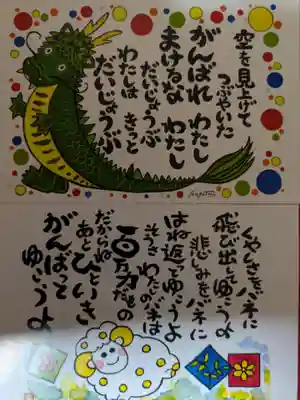 空を見上げて
つぶやいた
がんばれ わたし
まけるな わたし
だいじょうぶ
だいじょうぶ
わたしは きっと
だいじょうぶ
くやしさを バネに
飛び出してゆこうよ
悲しみを バネに
はね返ってゆこうよ
そうさ わたしの バネは
百万力だもの
だからね
あと ひといき
がんばって
ゆこうよ